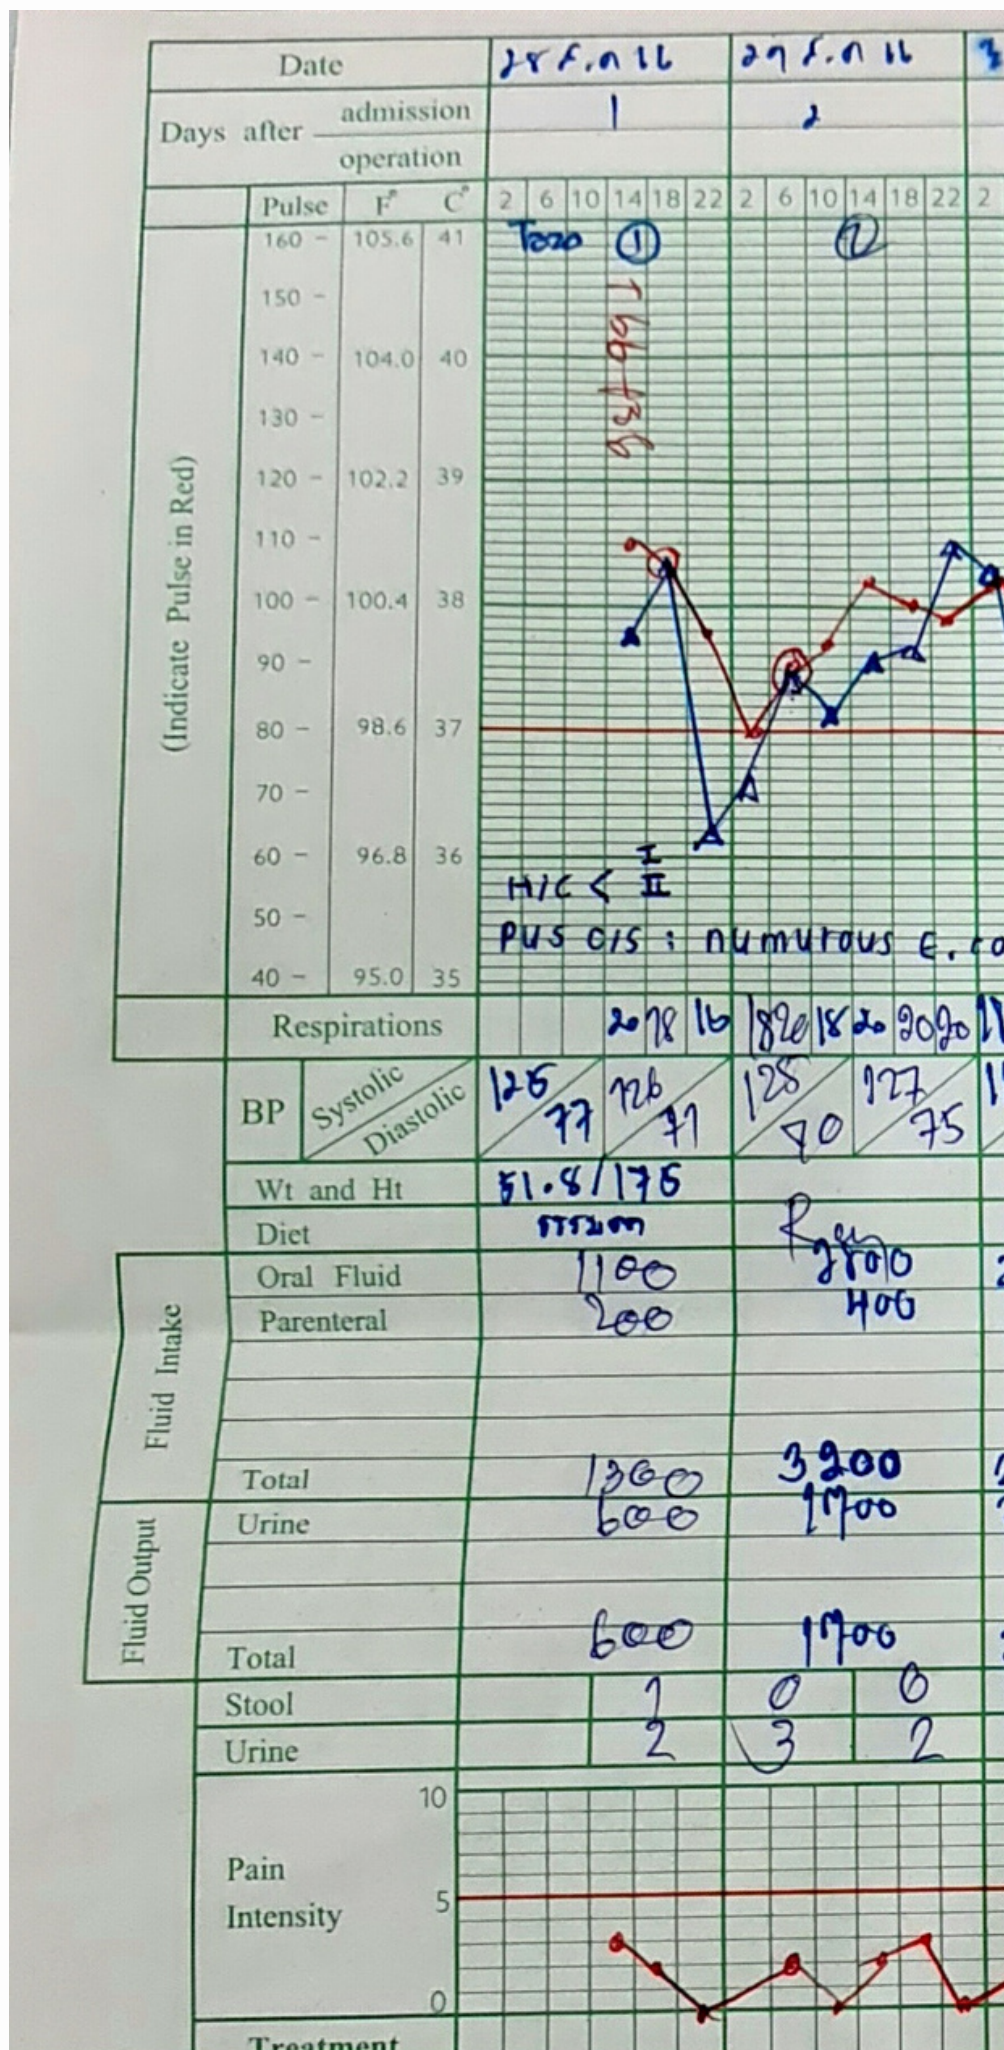 Date 28 ธ.ค 66 29 ธ.ค 66
Days after admission 1 2
operation
Pulse F° C° 2 6 10 14 18 22 2 6 10 14 18 22 2
160 - 105.6 41 Tazo ① ②
150 -
140 - 104.0 40
130 -
120 - 102.2 39
110 -
100 - 100.4 38
90 -
80 - 98.6 37
70 -
60 - 96.8 36
H/C < I
II
50 -
PUS C/S : numurous E. co
40 - 95.0 35
(Indicate Pulse in Red)
Respirations 20 18 16 18 20 18 20 20 20
BP Systolic Diastolic 126 77 126 71 128 90 127 75
Wt and Ht 51.8/175
Diet ธรรมดา
Fluid Intake
Oral Fluid 1100 2800
Parenteral 200 400
Total 1300 3200
Fluid Output
Urine 600 1700
Total 600 1700
Stool 1 0 0
Urine 2 3 2
10
Pain
Intensity 5
0
Treatment